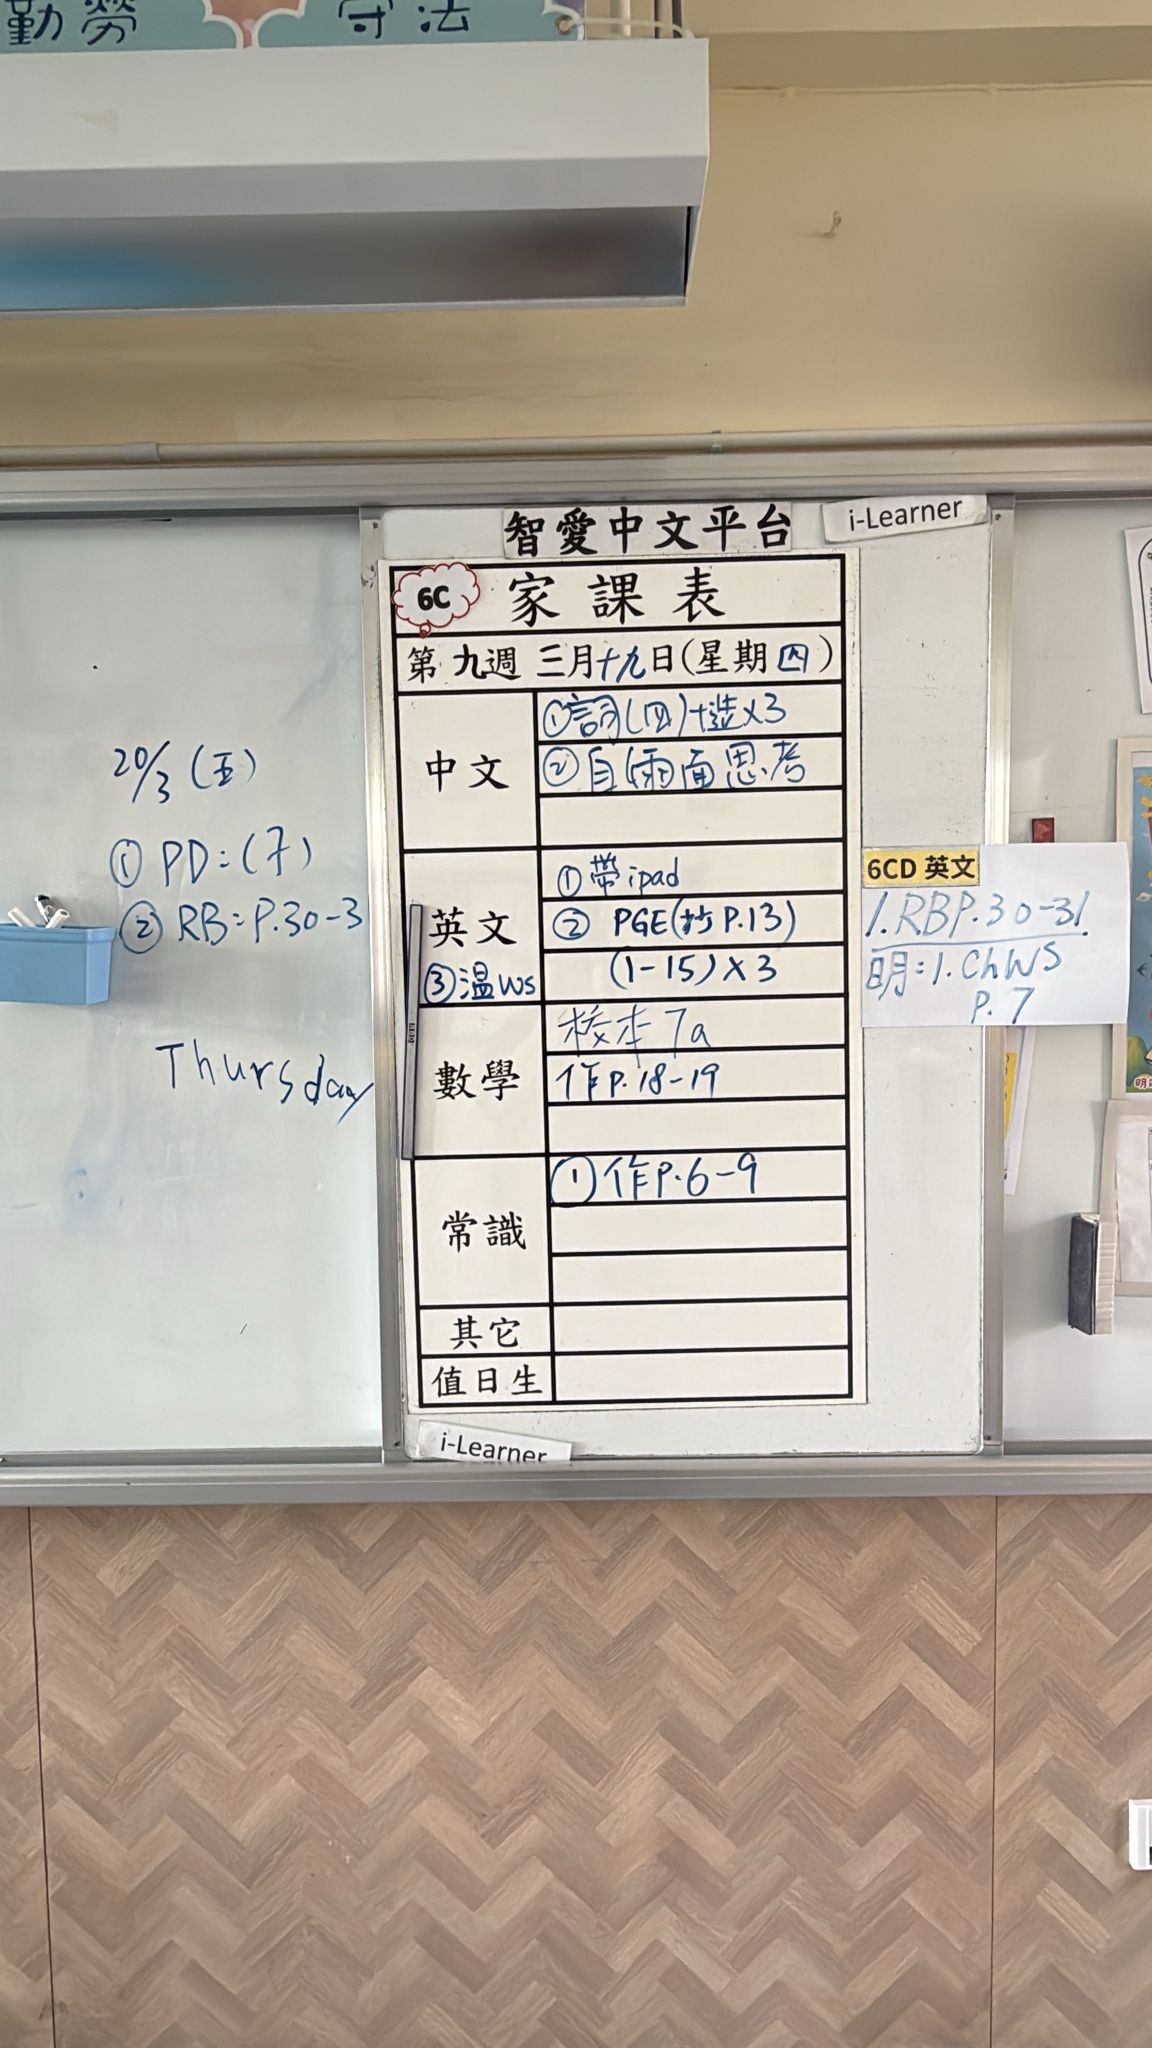 勤勞
守法
智愛中文平台
i-Learner
6C
家課表
第九週 三月十九日(星期四)
中文
①詞(四)+造x3
②自(兩面思考
英文
①帶ipad
② PGE(抄P.13)
(1-15)x3
③溫ws
數學
校本7a
作P.18-19
常識
①作P.6-9
其它
值日生
i-Learner
20/3 (五)
① PD=(7)
② RB=P.30-3
Thursday
6CD 英文
1.RBP.30-31.
明:1.ChWS
P.7